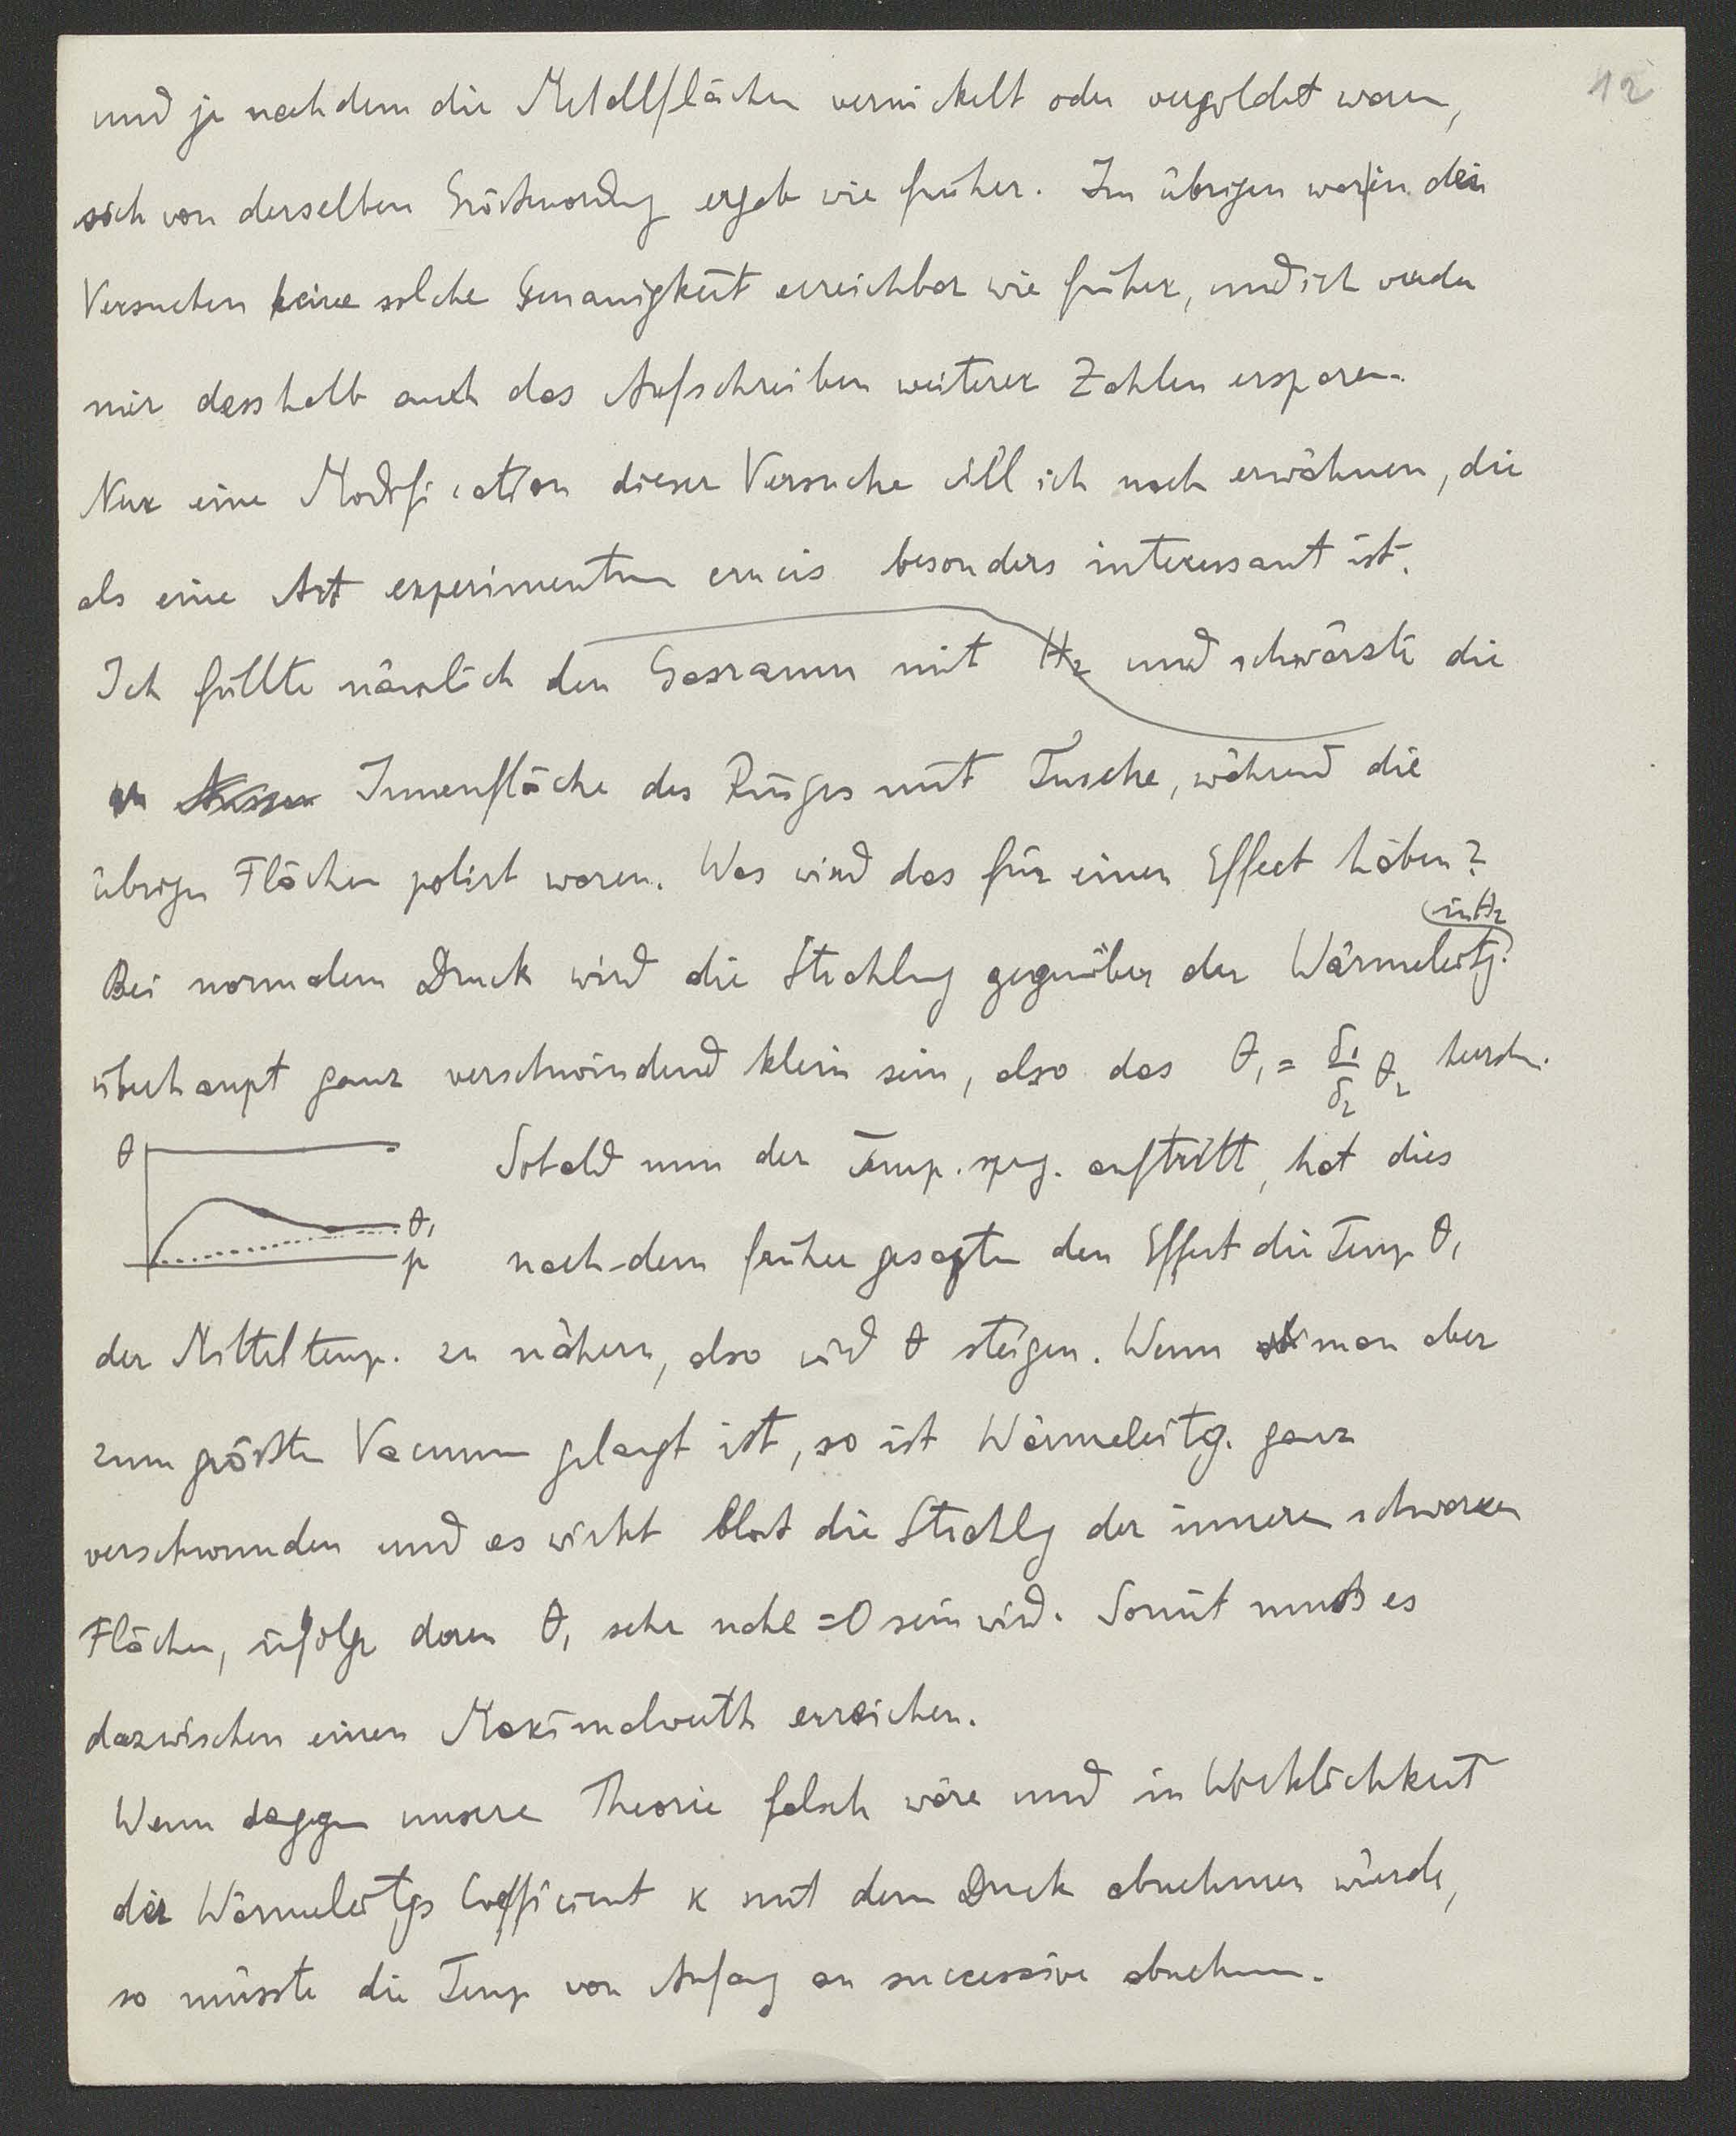 12
und je nachdem die Metallflächen vernickelt oder vergoldet waren,
sich von derselben Größenordng ergab wie früher. Im übrigen war in den
Versuchen keine solche Genauigkeit erreichbar wie früher, und ich werde
mir desshalb auch das Aufschreiben weiterer Zahlen ersparen.
Nur eine Modification dieser Versuche will ich noch erwähnen, die
als eine Art experimentum crucis besonders interessant ist.
Ich füllte nämlich den Gasraum mit H₂ und schwärzte die
Aussen Innenfläche des Ringes mit Tusche, während die
übrigen Flächen polirt waren. Was wird das für einen Effect haben?
in H₂
Bei normalem Druck wird die Strahlung gegenüber der Wärmeleitg.
überhaupt ganz verschwindend klein sein, also das θ₁ = δ₁/δ₂ θ₂
θ Sobald nun der Temp. spg. auftritt, hat dies
θ₁
p nach dem früher gesagten den Effect die Temp θ₁
der Mitteltemp. zu nähern, also wird θ steigen. Wenn man aber
zum größten Vacuum gelangt ist, so ist Wärmeleitg. ganz
verschwunden und es wirkt bloß die Strahlg der inneren schwarzen
Flächen, infolge deren θ₁ sehr nahe =0 sein wird. Somit muß es
dazwischen einen Maximalwerth erreichen.
Wenn dagegen unsere Theorie falsch wäre und in Wirklichkeit
der Wärmeleitgs Coefficient κ mit dem Druck abnehmen würde,
so müsste die Temp von Anfang an successive abnehmen.